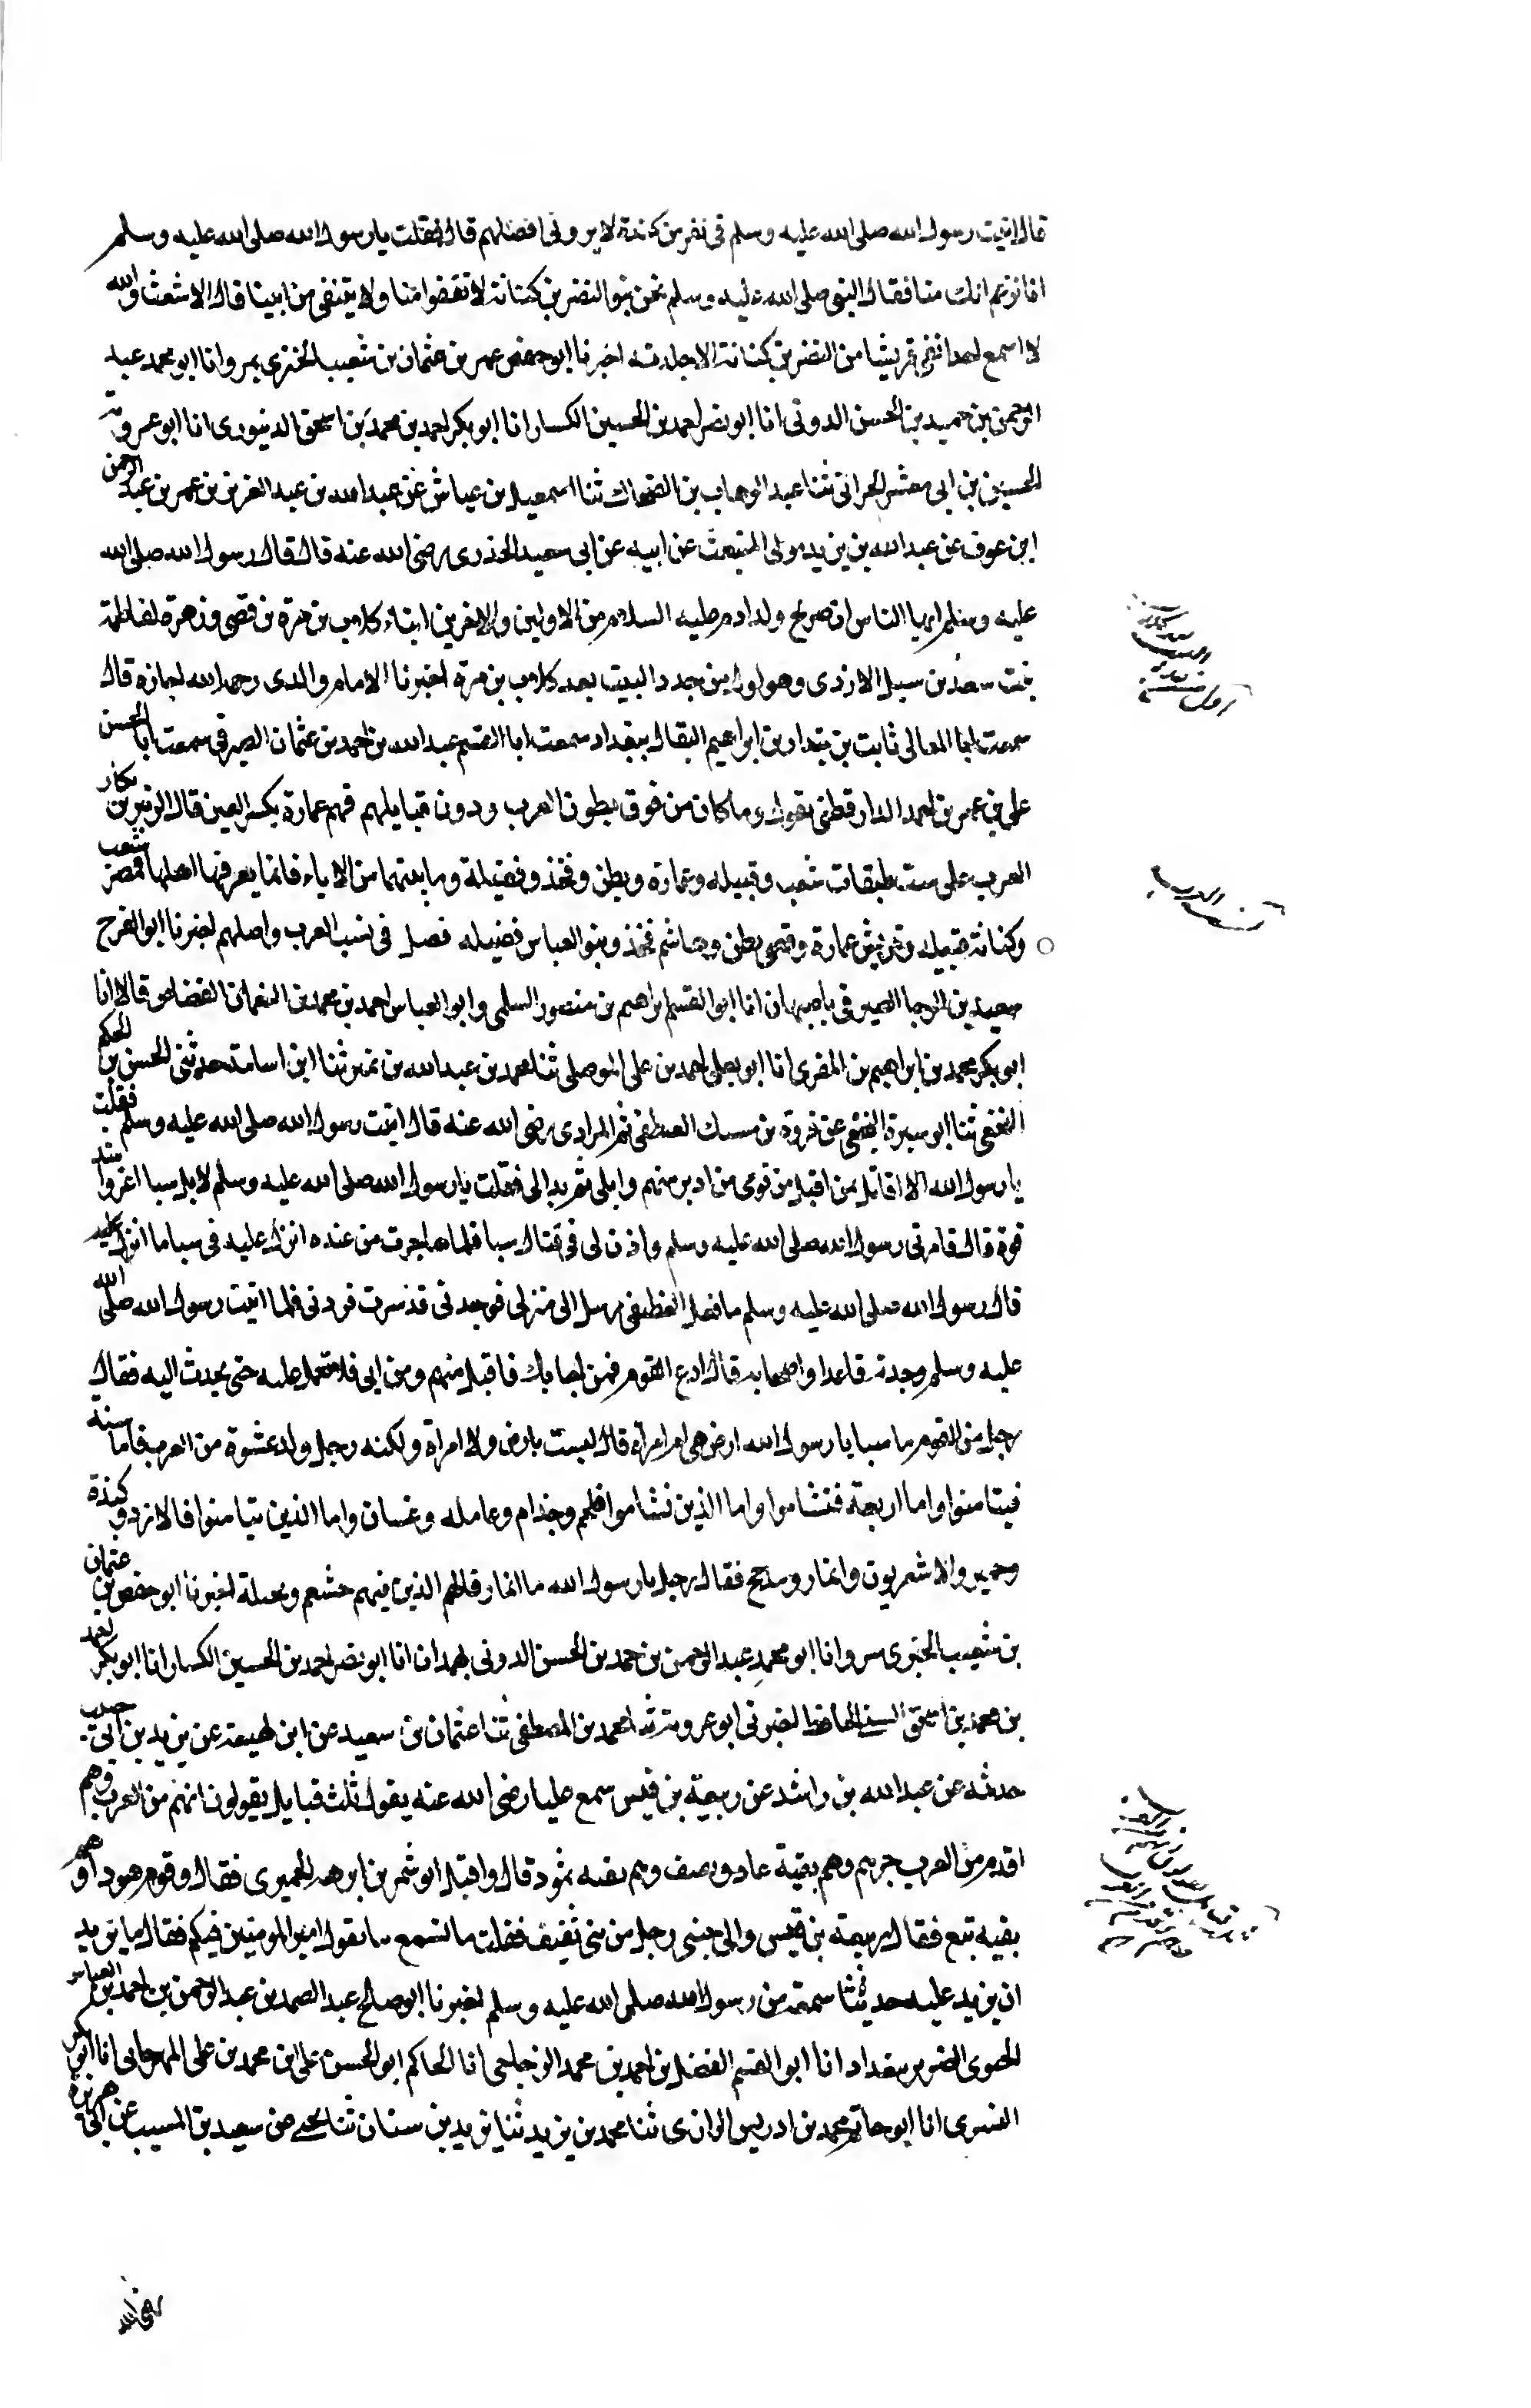 قال اتيت رسول الله صلى الله عليه وسلم في نفر من كندة لا يروني افضلهم قال فقلت يا رسول الله صلى الله عليه وسلم
انا نزعم انك منا فقال النبي صلى الله عليه وسلم نحن بنو النضر بن كنانة لا نقفوا منا ولا ينتفى من ابينا قال الاشعث والله
لا اسمع احدا نفى قريشا من النضر بن كنانة الا جلدته اخبرنا ابو حفص عمر بن عثمان بن شعيب الجنزي بمرو انا ابو محمد عبد
الرحمن بن حميد بن الحسن الدوني انا ابو نصر احمد بن الحسين الكسار انا ابو بكر احمد بن محمد بن اسحق الدينوري انا ابو عروبة
الحسين بن ابي معشر الحراني ثنا عبد الوهاب بن الضحاك ثنا اسمعيل بن عياش عن عبد الله بن عبد العزيز بن عمر بن عبد الرحمن
ابن عوف عن عبد الله بن يزيد مولى المنبعث عن ابيه عن ابي سعيد الخدري رضي الله عنه قال قال رسول الله صلى الله
عليه وسلم ايها الناس ان صريح ولد ادم عليه السلام من الاولين والاخرين ابناء كلاب بن مرة بن قصي وزهرة لفاطمة
بنت سعد بن سيل الازدي وهو اول من جدد البيت بعد كلاب بن مرة اخبرنا الامام والدي رحمه الله اجازة قال
سمعت ابا المعالي ثابت بن بندار بن ابراهيم البقال ببغداد سمعت ابا القسم عبد الله بن احمد بن عثمان الصيرفي سمعت ابا الحسن
علي بن عمر بن احمد الدارقطني يقول وما كان من فوق بطون العرب ودون قبايلهم فهم عمارة بكسر العين قال الزبير بن بكار
العرب على ست طبقات شعب وقبيله وعمارة وبطن وفخذ وفصيلة وما بينهما من الاباء فانما يعرفها اهلها فمضر شعب
وكنانة قبيله وقريش عمارة وقصي بطن وهاشم فخذ وبنو العباس فصيله فصل في نسب العرب واصلهم اخبرنا ابو الفرج
سعيد بن ابي الرجا الصيرفي باصبهان انا ابو القسم ابراهيم بن منصور السلمي وابو العباس احمد بن محمد بن النعمان الفضاض قالا انا
ابو بكر محمد بن ابراهيم بن المقري انا ابو يعلى احمد بن علي الموصلي ثنا محمد بن عبد الله بن نمير ثنا ابن اسامة حدثني الحسن بن الحكم
النخعي ثنا ابو سبرة النخعي عن فروة بن مسيك الغطفي ثم المرادي رضي الله عنه قال اتيت رسول الله صلى الله عليه وسلم فقلت
يا رسول الله الا اقاتل بمن اقبل من قومي من ادبر منهم وابلى ثم بدا لي فقلت يا رسول الله صلى الله عليه وسلم لا بل سبا اعزوا اشد
قوة قال فامرني رسول الله صلى الله عليه وسلم واذن لي في قتال سبا فلما خرجت من عنده انزل عليه في سبا ما انزل
قال رسول الله صلى الله عليه وسلم ما فعل الغطيفي ارسل الى منزلي فوجدني قد سرت فردني فلما اتيت رسول الله صلى الله
عليه وسلم وجدته قاعدا واصحابه قال ادع القوم فمن اجابك فاقبل منهم ومن ابى فلا تعجل عليه حتى تحدث اليه فقال
رجل من القوم ما سبا يا رسول الله ارض هي ام امراة قال ليست بارض ولا امراة ولكنه رجل ولد عشرة من العرب فاما ستة
فيتامنوا واما اربعة فتشاموا واما الذين تشاموا فلخم وجذام وعامله وغسان واما الذين تيامنوا فالازد وكندة
وحمير والاشعريون وانمار ومذحج فقال رجل يا رسول الله ما انمار قال هم الذين منهم خثعم وبجيلة اخبرنا ابو حفص بن عثمان
بن شعيب الجنزي بمرو انا ابو محمد عبد الرحمن بن حمد بن الحسن الدوني بهمدان انا ابو نصر احمد بن الحسين الكسار انا ابو بكر احمد
بن محمد بن اسحق السني الحافظ اخبرني ابو عروبة ثنا محمد بن المصطفى ثنا عثمان بن سعيد عن ابن لهيعة عن يزيد بن ابي حبيب
حدثه عن عبد الله بن راشد عن ربيعة بن قيس سمع عليا رضي الله عنه يقول ثلث قبايل يقولون انهم من العرب وهم
اقدم من العرب جرهم وهم بقية عاد وثقيف وهم بقيه ثمود قال واقبل ابو شمر بن ابرهه الحميري فقال وقوم هود او هم
بقيه تبع فقال ربيعة بن قيس والى جنبي رجل من بني ثقيف فقلت ما تسمع ما يقول امير المومنين فيكم فقال ما تريد
ان يزيد عليه حديثا سمعته من رسول الله صلى الله عليه وسلم اخبرنا ابو صالح عبد الصمد بن عبد الرحمن بن احمد بن العباس
الحنوي الضرير ببغداد انا ابو القسم الفضل بن احمد بن محمد الزجاجي انا الحاكم ابو الحسن علي ابن محمد بن علي المهرجاني انا ابو بكر
انا ابو حاتم محمد بن ادريس الرازي ثنا محمد بن يزيد ثنا يزيد بن سنان ثنا يحيى عن سعيد بن المسيب عن ابي هريرة